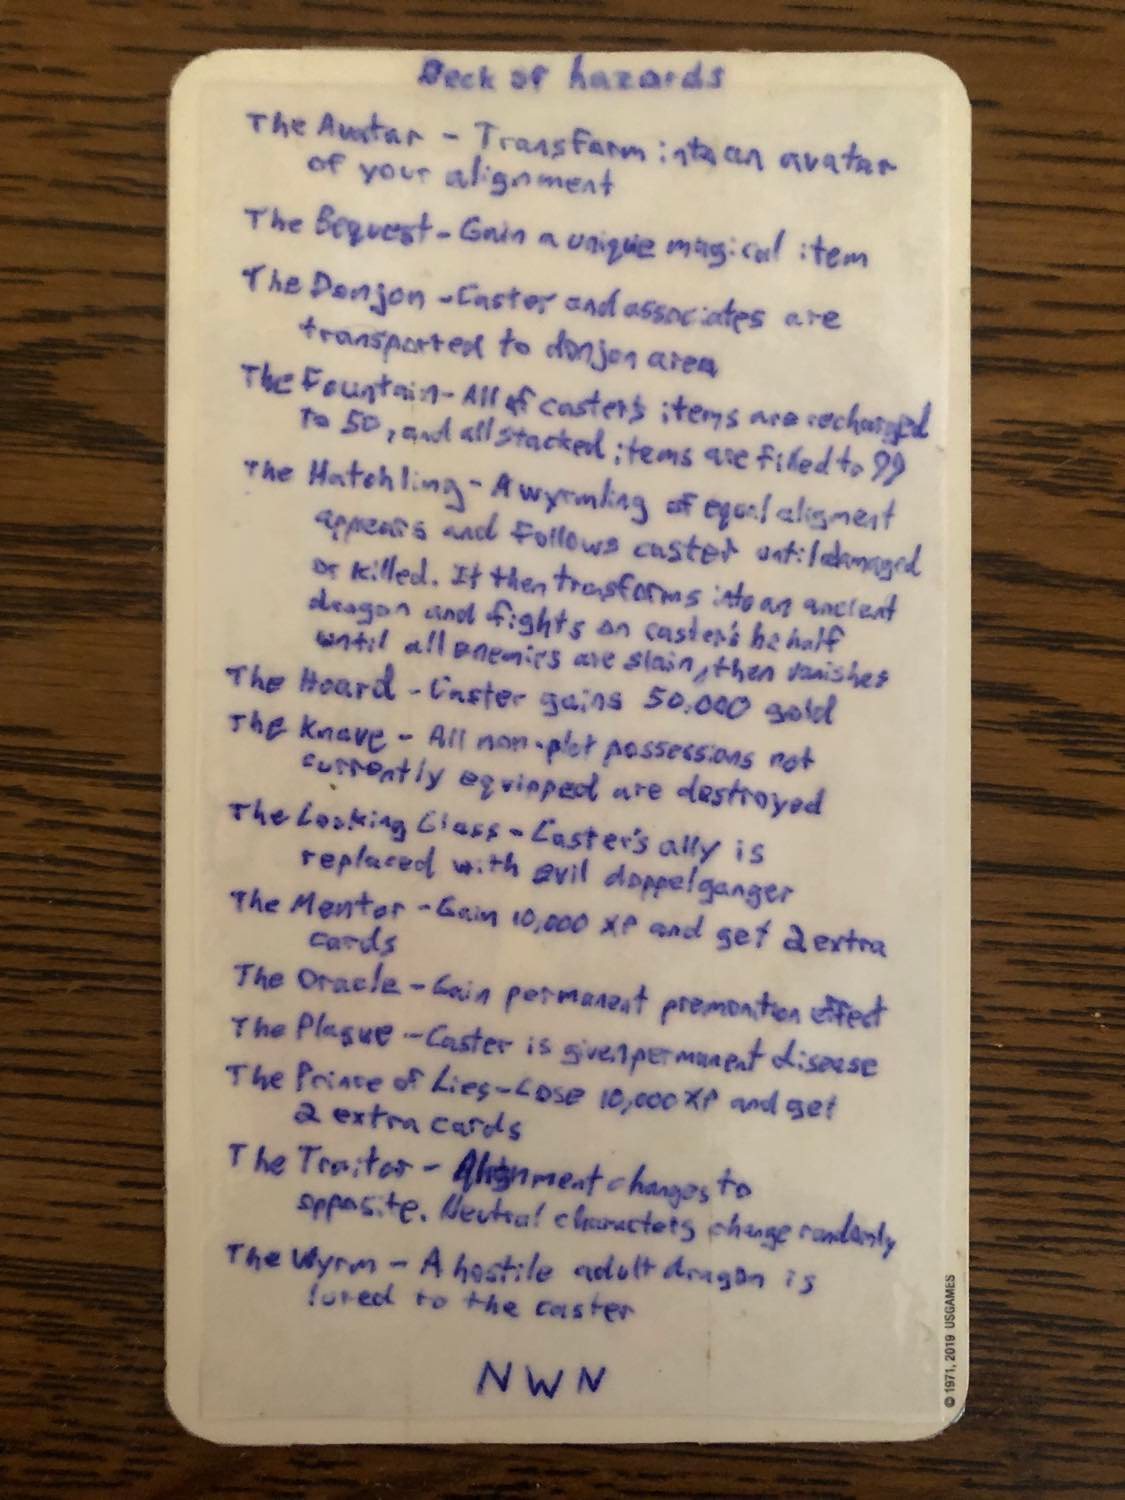 Deck of hazards
The Avatar - Transform into an avatar
of your alignment
The Bequest - Gain a unique magical item
The Donjon - Caster and associates are
transported to donjon area
The Fountain - All of caster's items are recharged
To 50, and all stacked items are filled to 99
The Hatchling - A wyrmling of equal aligment
appears and follows caster until damaged
or killed. It then transforms into an ancient
dragon and fights on caster's behalf
until all enemies are slain, then vanishes
The Hoard - Caster gains 50,000 gold
The Knave - All non-plot possessions not
currently equipped are destroyed
The Looking Glass - Caster's ally is
replaced with evil doppelganger
The Mentor - Gain 10,000 XP and get 2 extra
cards
The Oracle - Gain permanent premonition effect
The Plague - Caster is given permanent disease
The Prince of Lies - Lose 10,000 XP and get
2 extra cards
The Traitor - Alignment changes to
opposite. Neutral characters change randomly
The Wyrm - A hostile adult dragon is
lured to the caster
NWN
© 1971, 2019 USGAMES